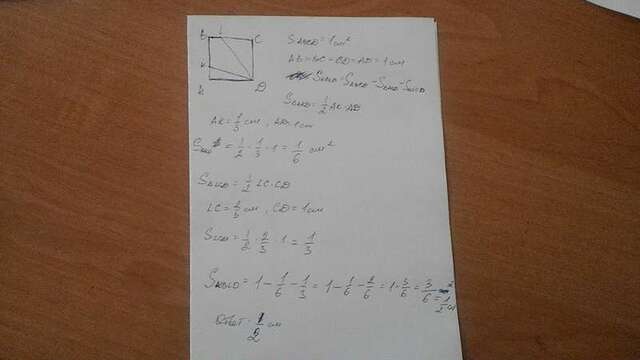 B L C
K
A D
S ABCD = 1 см²
AB = BC = CD = AD = 1 см
S KBLD = S ABCD - S KAD - S LCD
S KAD = 1/2 AK · AD
AK = 1/3 см, AD = 1 см
S KAD = 1/2 · 1/3 · 1 = 1/6 см²
S LCD = 1/2 LC · CD
LC = 2/3 см, CD = 1 см
S LCD = 1/2 · 2/3 · 1 = 1/3
S KBLD = 1 - 1/6 - 1/3 = 1 - 1/6 - 2/6 = 1 - 3/6 = 3/6 = 1/2 см²
Ответ: 1/2 см